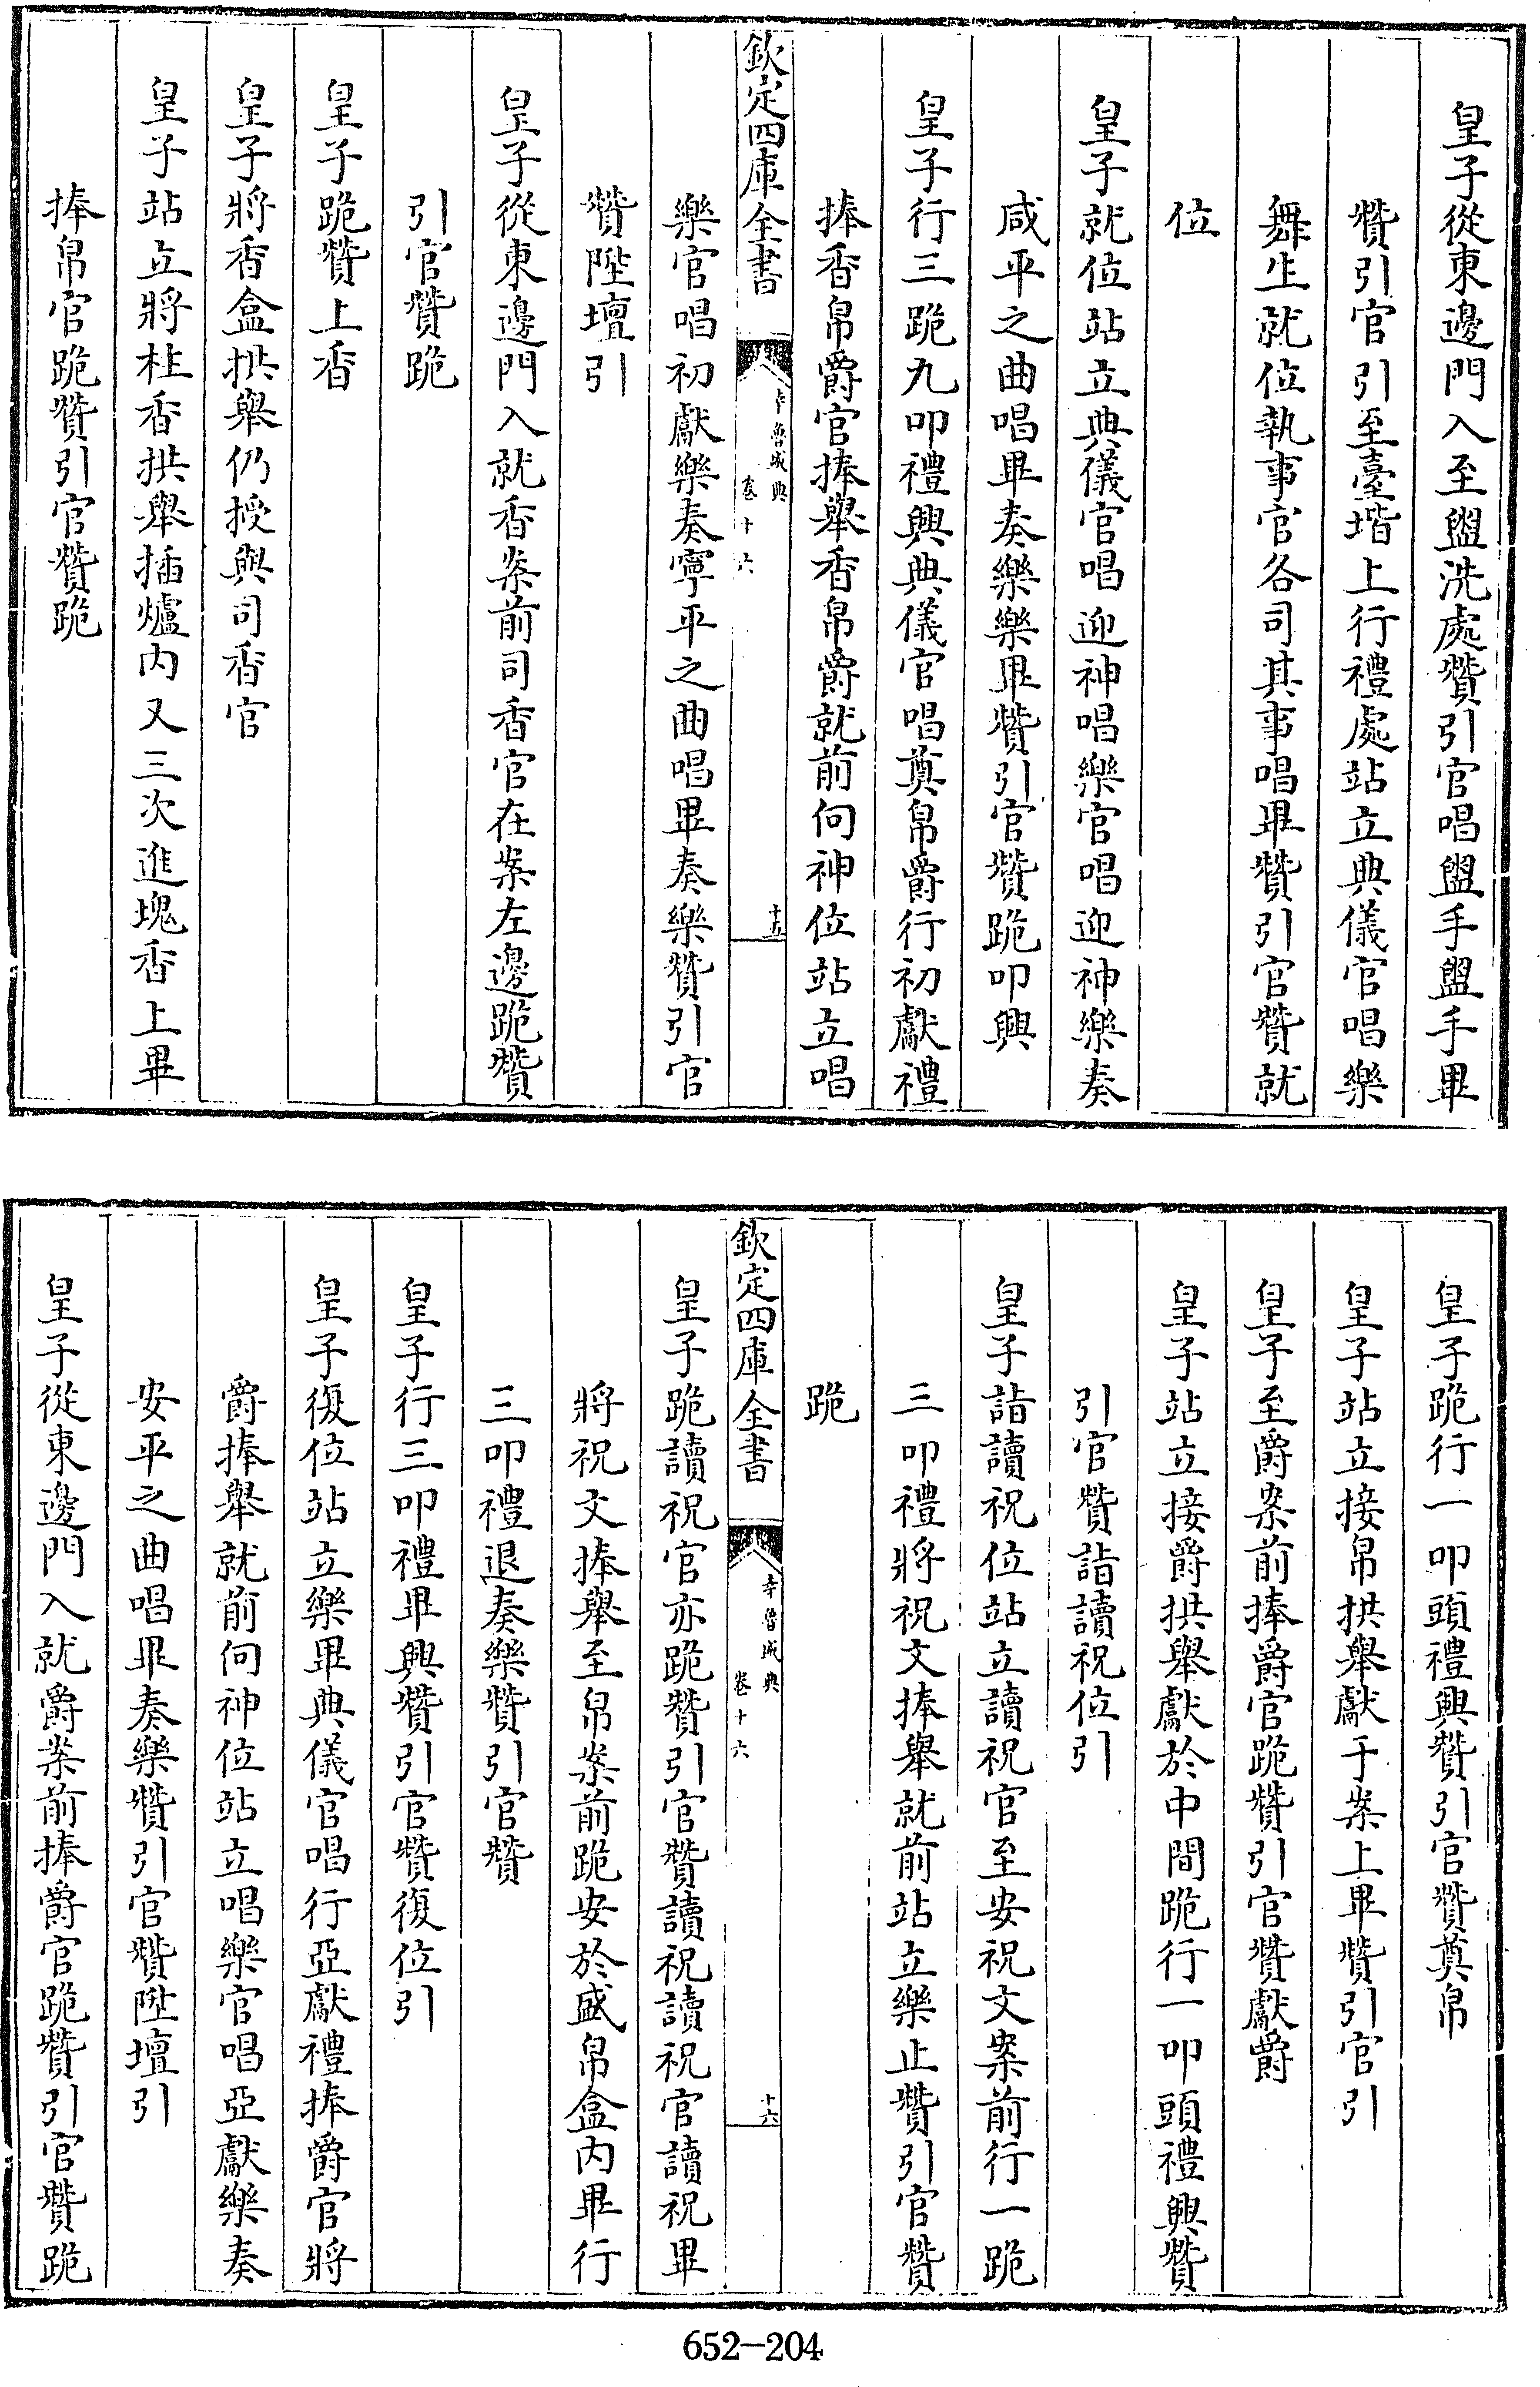 皇子從東邊門入至盥洗處贊引官唱盥手盥手畢
贊引官引至臺堦上行禮處站立典儀官唱樂
舞生就位執事官各司其事唱畢贊引官贊就
位
皇子就位站立典儀官唱迎神唱樂官唱迎神樂奏
咸平之曲唱畢奏樂樂畢贊引官贊跪叩興
皇子行三跪九叩禮興典儀官唱奠帛爵行初獻禮
捧香帛爵官捧舉香帛爵就前向神位站立唱
欽定四庫全書
幸魯盛典
卷十六
十五
樂官唱初獻樂奏寧平之曲唱畢奏樂贊引官
贊陞壇引
皇子從東邊門入就香案前司香官在案左邊跪贊
引官贊跪
皇子跪贊上香
皇子將香盒拱舉仍授與司香官
皇子站立將柱香拱舉插爐內又三次進塊香上畢
捧帛官跪贊引官贊跪
皇子跪行一叩頭禮興贊引官贊奠帛
皇子站立接帛拱舉獻于案上畢贊引官引
皇子至爵案前捧爵官跪贊引官贊獻爵
皇子站立接爵拱舉獻於中間跪行一叩頭禮興贊
引官贊詣讀祝位引
皇子詣讀祝位站立讀祝官至安祝文案前行一跪
三叩禮將祝文捧舉就前站立樂止贊引官贊
跪
欽定四庫全書
幸魯盛典
卷十六
十六
皇子跪讀祝官亦跪贊引官贊讀祝讀祝官讀祝畢
將祝文捧舉至帛案前跪安於盛帛盒內畢行
三叩禮退奏樂贊引官贊
皇子行三叩禮畢興贊引官贊復位引
皇子復位站立樂畢典儀官唱行亞獻禮捧爵官將
爵捧舉就前向神位站立唱樂官唱亞獻樂奏
安平之曲唱畢奏樂贊引官贊陞壇引
皇子從東邊門入就爵案前捧爵官跪贊引官贊跪
652-204